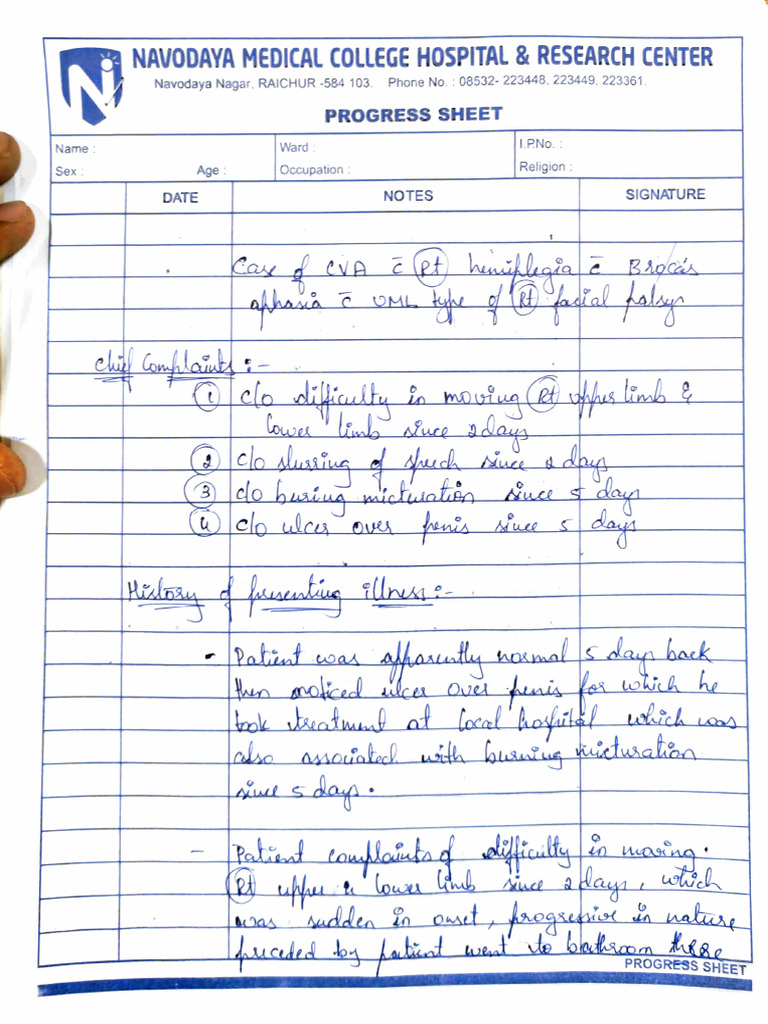 NAVODAYA MEDICAL COLLEGE HOSPITAL & RESEARCH CENTER
Navodaya Nagar, RAICHUR -584 103. Phone No. : 08532- 223448, 223449, 223361.
PROGRESS SHEET
Name : Ward : I.P.No. :
Sex : Age : Occupation : Religion :
DATE NOTES SIGNATURE
Case of CVA c̄ Rt hemiplegia c̄ Broca's
aphasia c̄ UML type of Rt facial palsy
Chief Complaints :-
1 c/o difficulty in moving Rt upper limb &
lower limb since 2 days
2 c/o slurring of speech since 2 days
3 c/o buring micturation since 5 days
4 c/o ulcer over penis since 5 days
History of presenting illness :-
- Patient was apparently normal 5 days back
then noticed ulcer over penis for which he
took treatment at local hospital which was
also associated with burning micturation
since 5 days.
- Patient complaints of difficulty in moving.
Rt upper & lower limb since 2 days, which
was sudden in onset, progressive in nature
preceded by patient went to bathroom there
PROGRESS SHEET